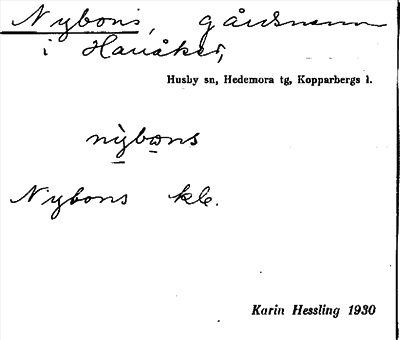 Nybons, gårdsnamn
i Havåker,
Husby sn, Hedemora tg, Kopparbergs l.
nỳbons
Nybons kle.
Karin Hessling 1930